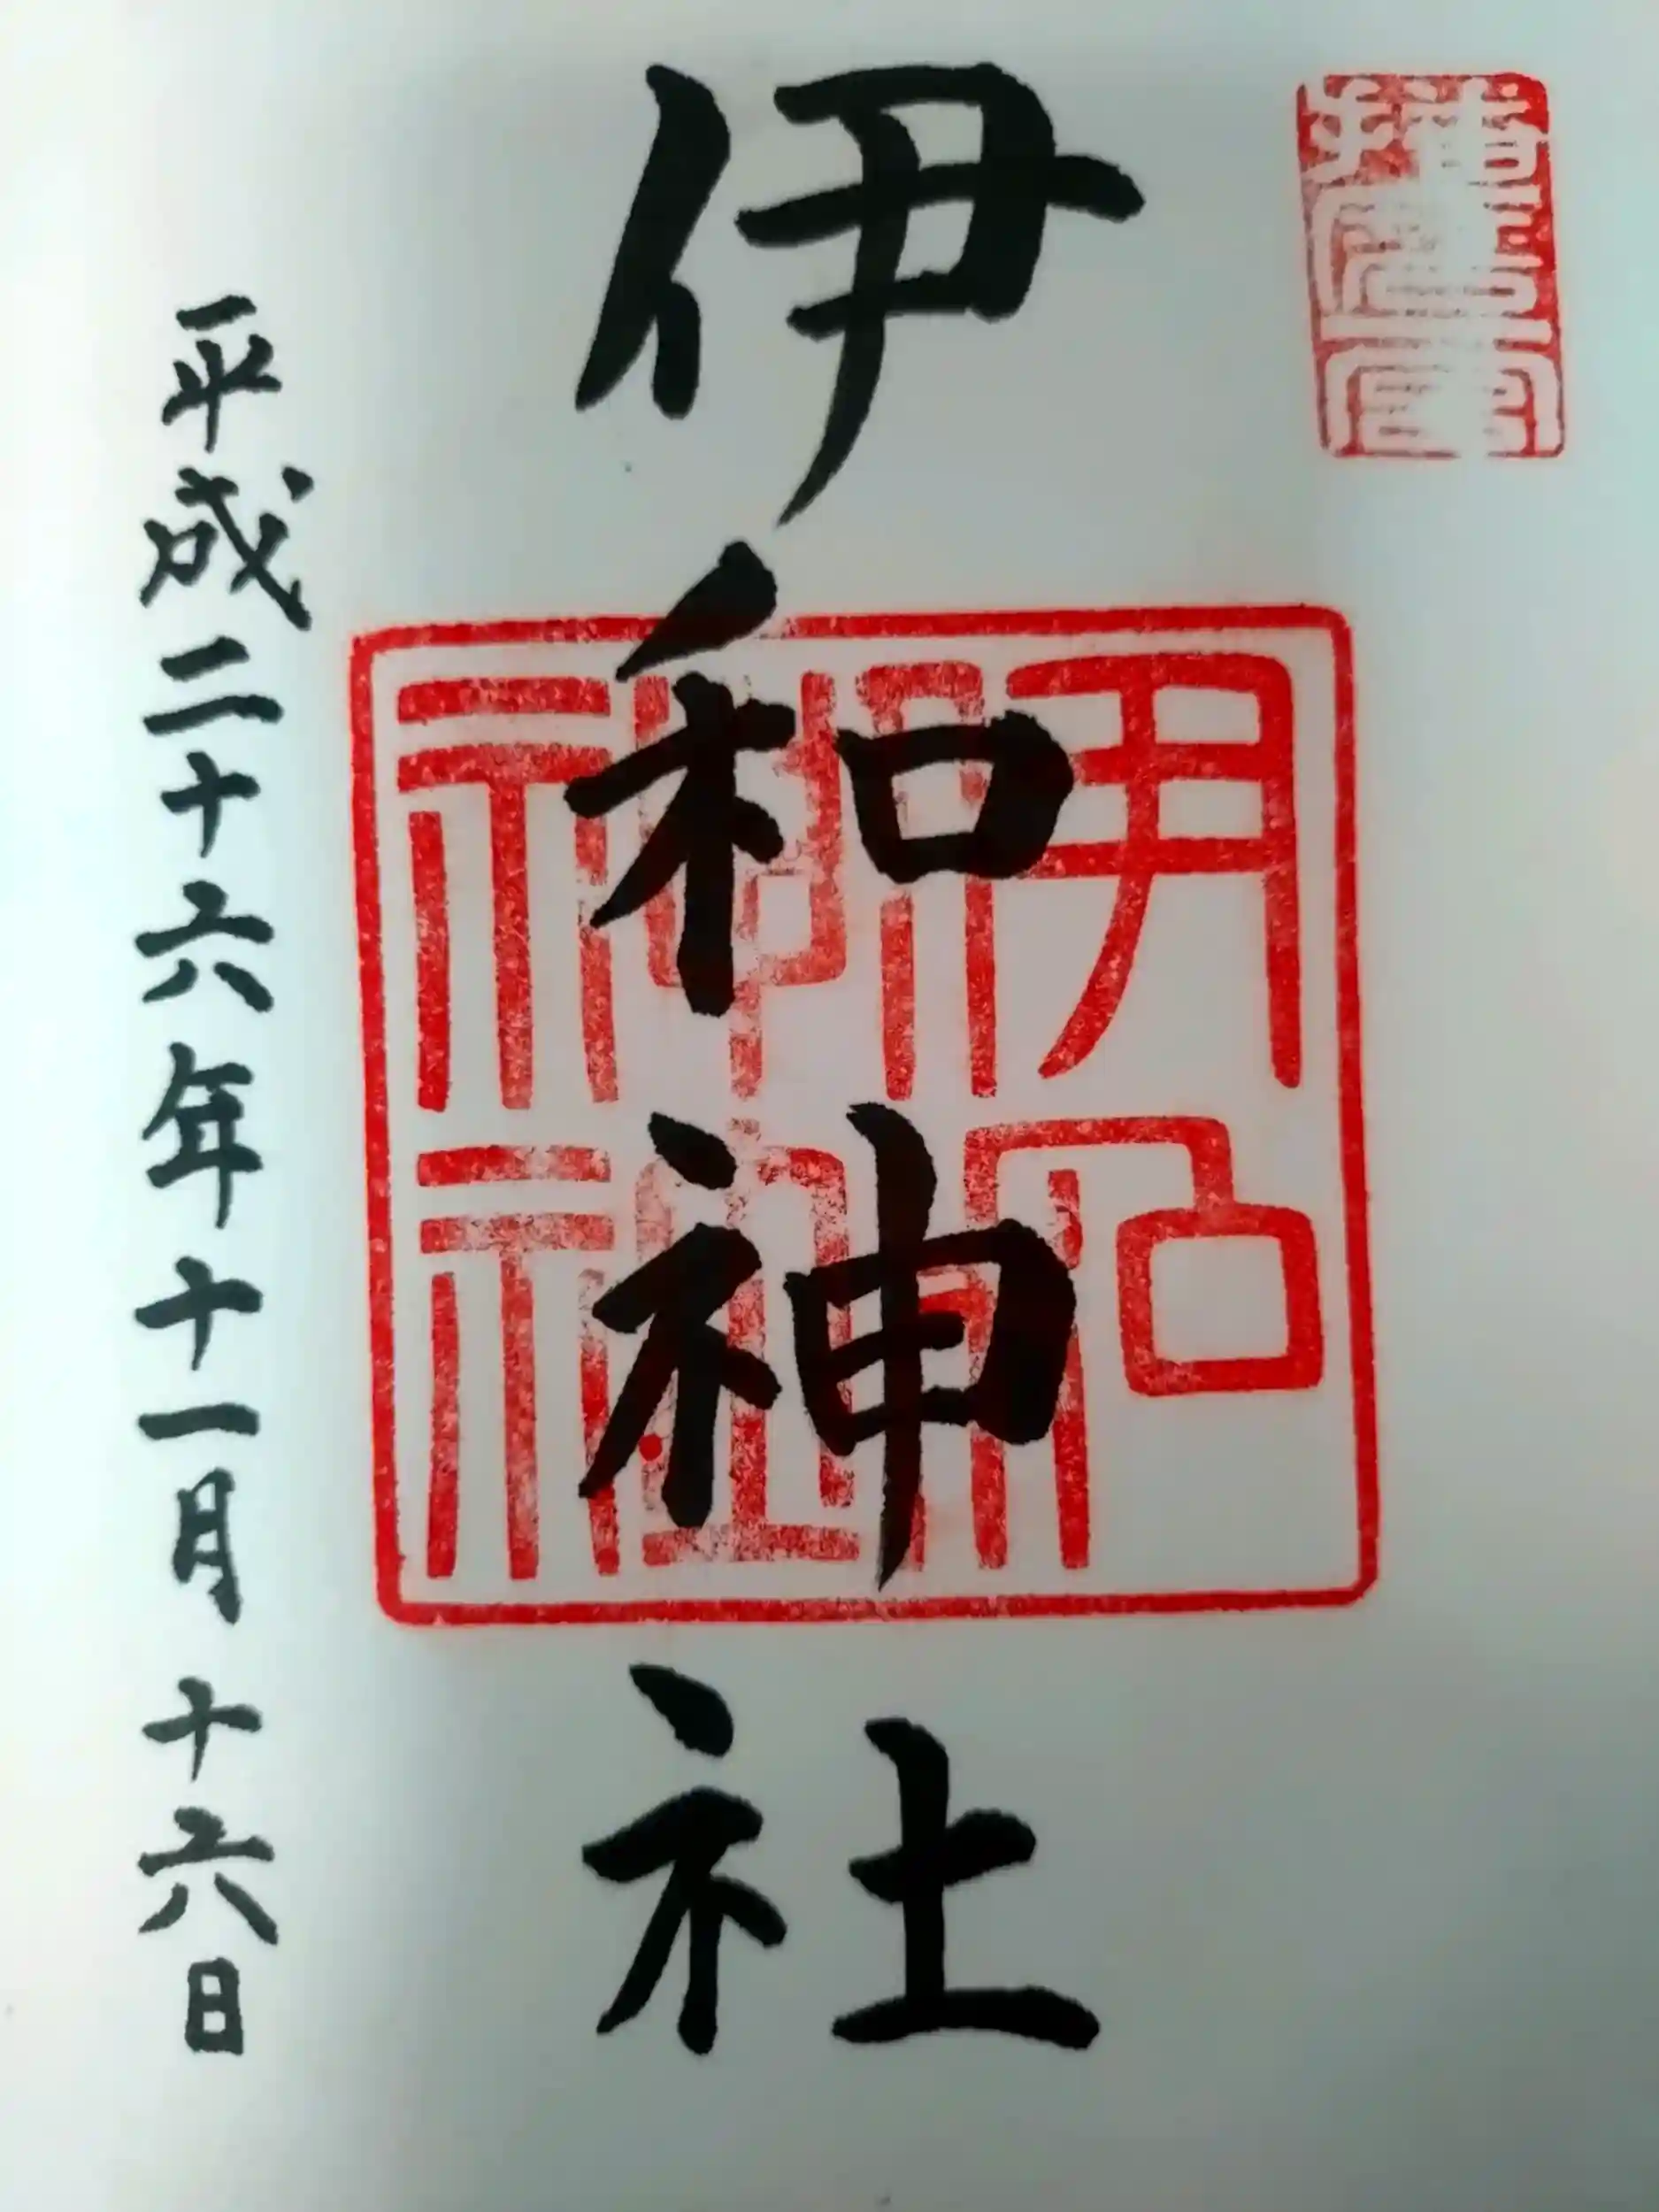 播磨一宮
伊和神社
伊和
神社
平成二十六年十一月十六日